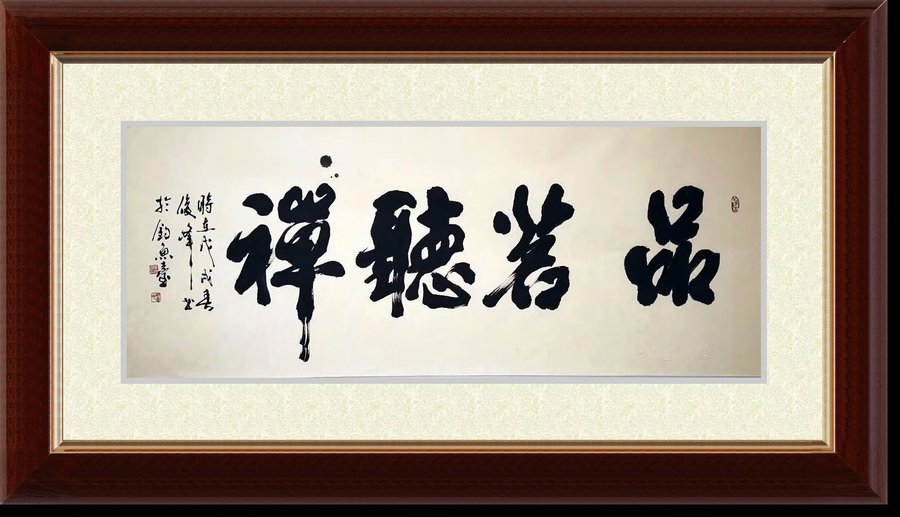 品茗聽禪
時在戊戌春
俊峰書
於釣魚臺